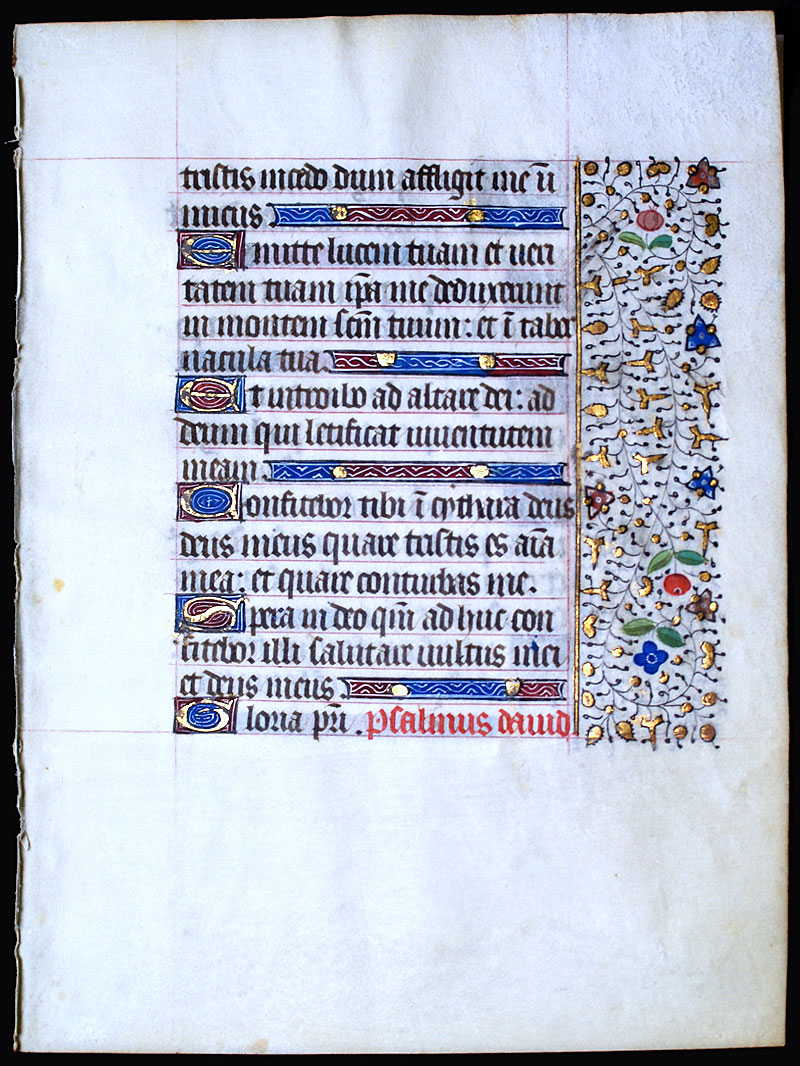 tristis incedo dum affligit me in̄
micus
Emitte lucem tuam et veri
tatem tuam ip̄a me deduxerunt
in montem sc̄m tuum: et ī taber
nacula tua.
Et introibo ad altare dei: ad
deum qui letificat iuventutem
meam.
Confitebor tibi ī cythara deus
deus meus quare tristis es aīa
mea: et quare conturbas me.
Spera in deo qm̄ ad huc con
fitebor illi salutare vultus mei
et deus meus
Gloria pr̄i. Psalmus david